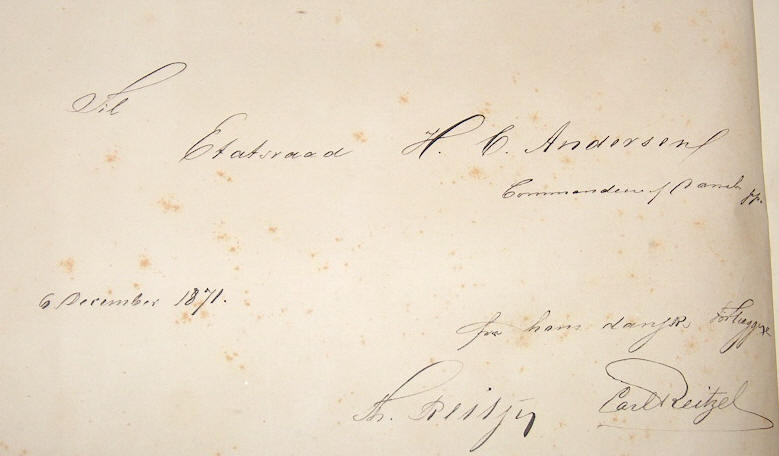 Til
Etatsraad H. C. Andersen
Commandeur af Danneb pp.
6 December 1871.
fra hans danske Forlæggere
Th. Reitzel Carl Reitzel